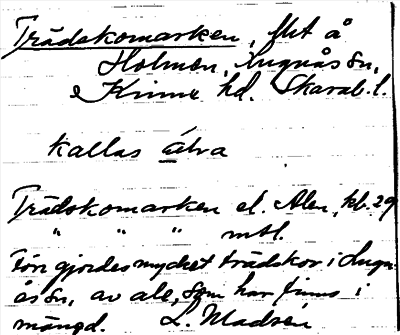 Trädskomarken, flt å
Holmen, Lugnås sn,
Kinne hd. Skarab. l.
kallas
Trädskomarken el. Alen, kb. 29
" " " mtl.
Förr gjordes mycket trädskor i Lugn-
ås sn, av ale, som har finns i
mängd. L. Madsén